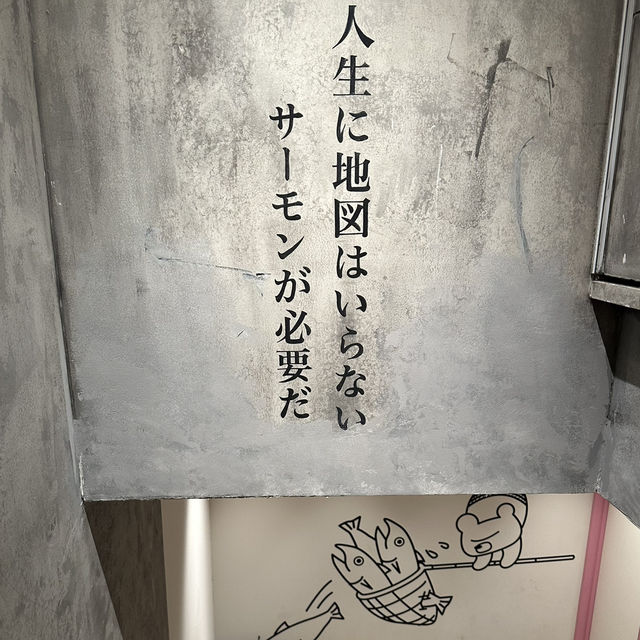 人生に地図はいらない
サーモンが必要だ